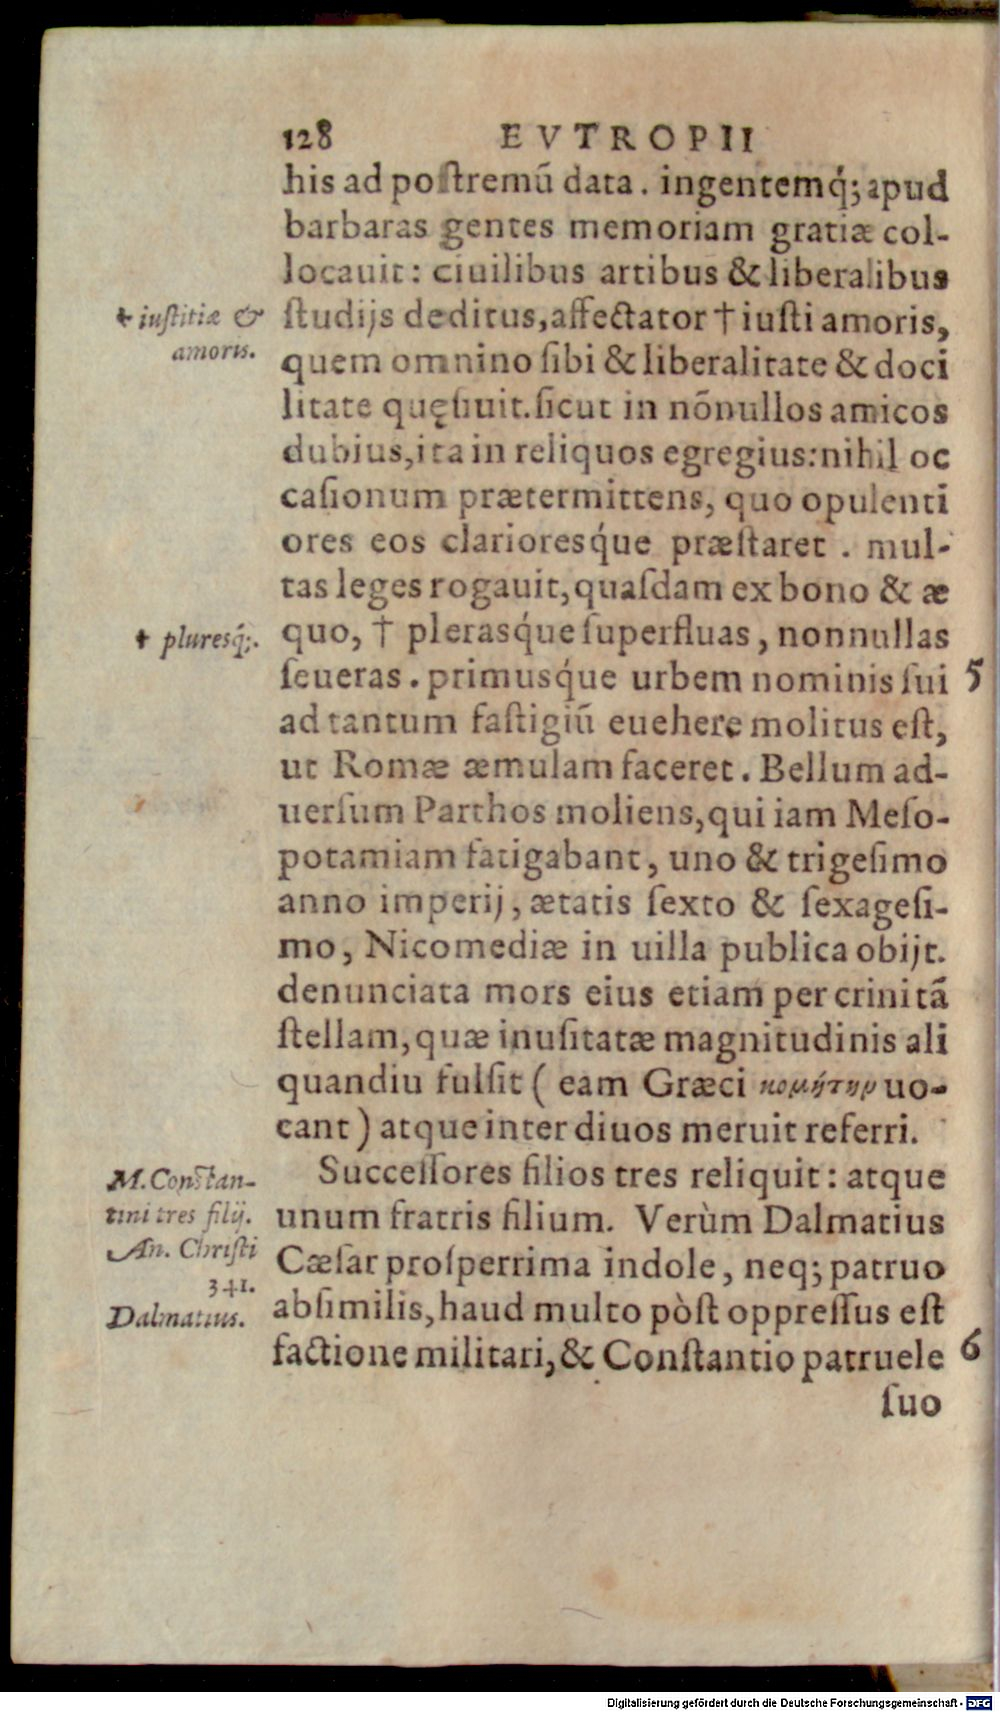 128 EVTROPII
his ad postremũ data. ingentemq́; apud
barbaras gentes memoriam gratiæ col-
locauit: ciuilibus artibus & liberalibus
✝ iustitiæ &
amoris.
studijs deditus, affectator † iusti amoris,
quem omnino sibi & liberalitate & doci
litate quęsiuit. sicut in nõnullos amicos
dubius, ita in reliquos egregius: nihil oc
casionum prætermittens, quo opulenti
ores eos clarioresq́ue præstaret. mul-
tas leges rogauit, quasdam ex bono & æ
✝ pluresq́;.
quo, † plerasq́ue superfluas, nonnullas
seueras. primusq́ue urbem nominis sui 5
ad tantum fastigiũ euehere molitus est,
ut Romæ æmulam faceret. Bellum ad-
uersum Parthos moliens, qui iam Meso-
potamiam fatigabant, uno & trigesimo
anno imperij, ætatis sexto & sexagesi-
mo, Nicomediæ in uilla publica obijt.
denunciata mors eius etiam per crinitã
stellam, quæ inusitatæ magnitudinis ali
quandiu fulsit ( eam Græci κομήτην uo-
cant ) atque inter diuos meruit referri.
M. Constan-
tini tres filij.
An. Christi
341.
Dalmatius.
Successores filios tres reliquit: atque
unum fratris filium. Verùm Dalmatius
Cæsar prosperrima indole, neq; patruo
absimilis, haud multo pòst oppressus est
factione militari, & Constantio patruele 6
suo
Digitalisierung gefördert durch die Deutsche Forschungsgemeinschaft - DFG